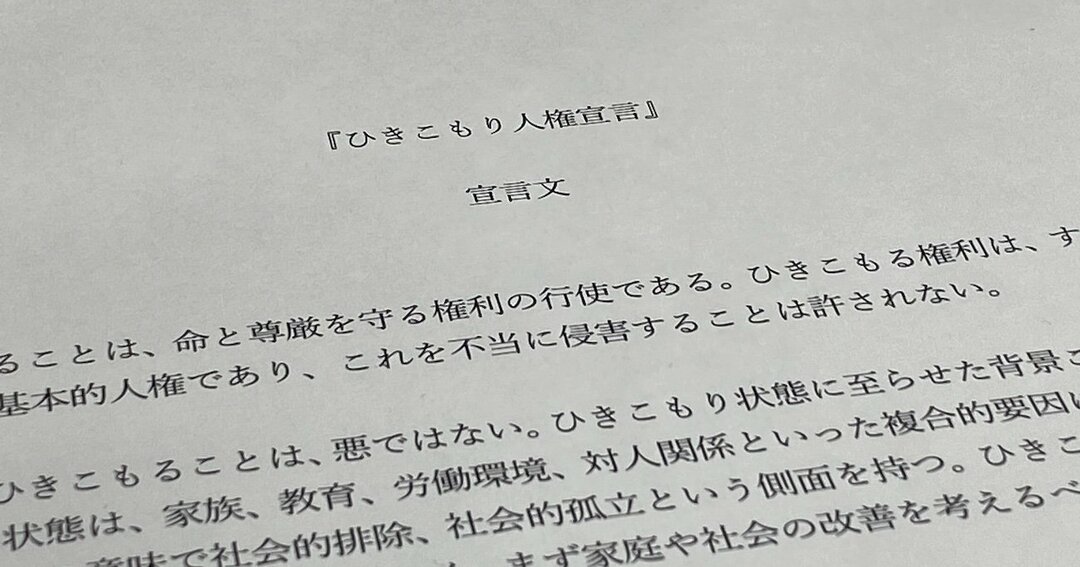 『ひきこもり人権宣言』
宣言文
ることは、命と尊厳を守る権利の行使である。ひきこもる権利は、す
基本的人権であり、これを不当に侵害することは許されない。
ひきこもることは、悪ではない。ひきこもり状態に至らせた背景こ
状態は、家族、教育、労働環境、対人関係といった複合的要因に
意味で社会的排除、社会的孤立という側面を持つ。ひきこ
まず家庭や社会の改善を考えるべ